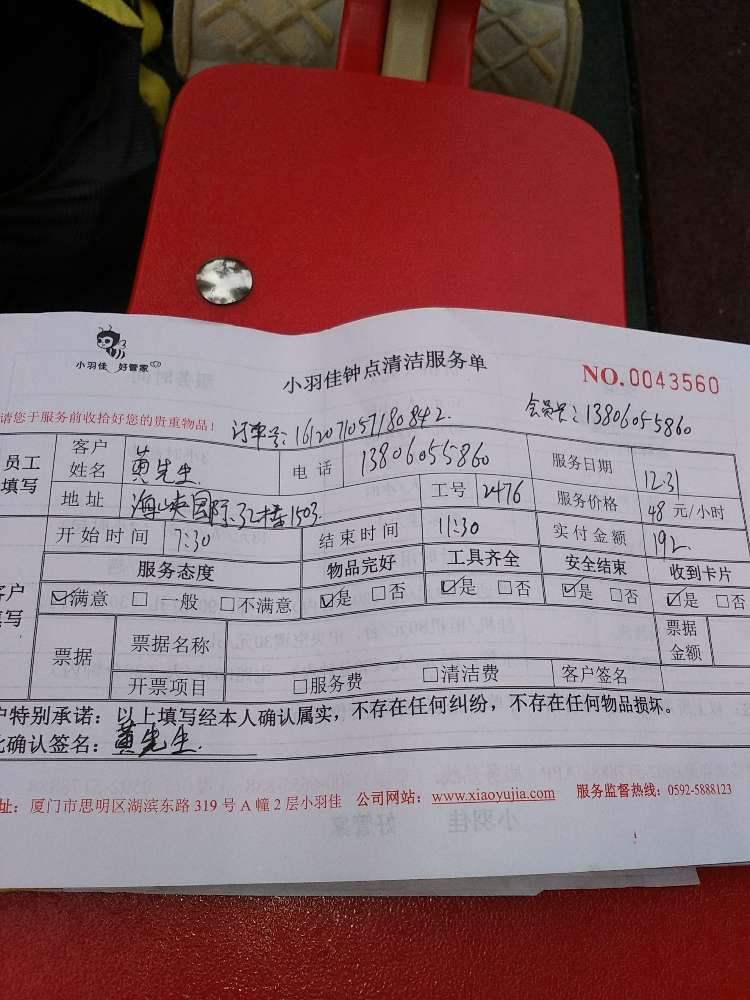 小羽佳 好管家
小羽佳钟点清洁服务单
NO.0043560
请您于服务前收拾好您的贵重物品!
订单号:1612071057180842.
会员号:13806055860
员工填写
客户姓名 黄先生. 电话 13806055860 服务日期 12.31
地址 海峡国际.32栋1503. 工号 2476 服务价格 48 元/小时
开始时间 7:30 结束时间 11:30 实付金额 192.
服务态度 物品完好 工具齐全 安全结束 收到卡片
☑满意 □一般 □不满意 ☑是 □否 ☑是 □否 ☑是 □否 ☑是 □否
票据 票据名称 票据金额
开票项目 □服务费 □清洁费 客户签名
户特别承诺:以上填写经本人确认属实,不存在任何纠纷,不存在任何物品损坏。
此确认签名:黄先生.
址:厦门市思明区湖滨东路 319 号 A 幢 2 层小羽佳 公司网站:www.xiaoyujia.com 服务监督热线:0592-5888123